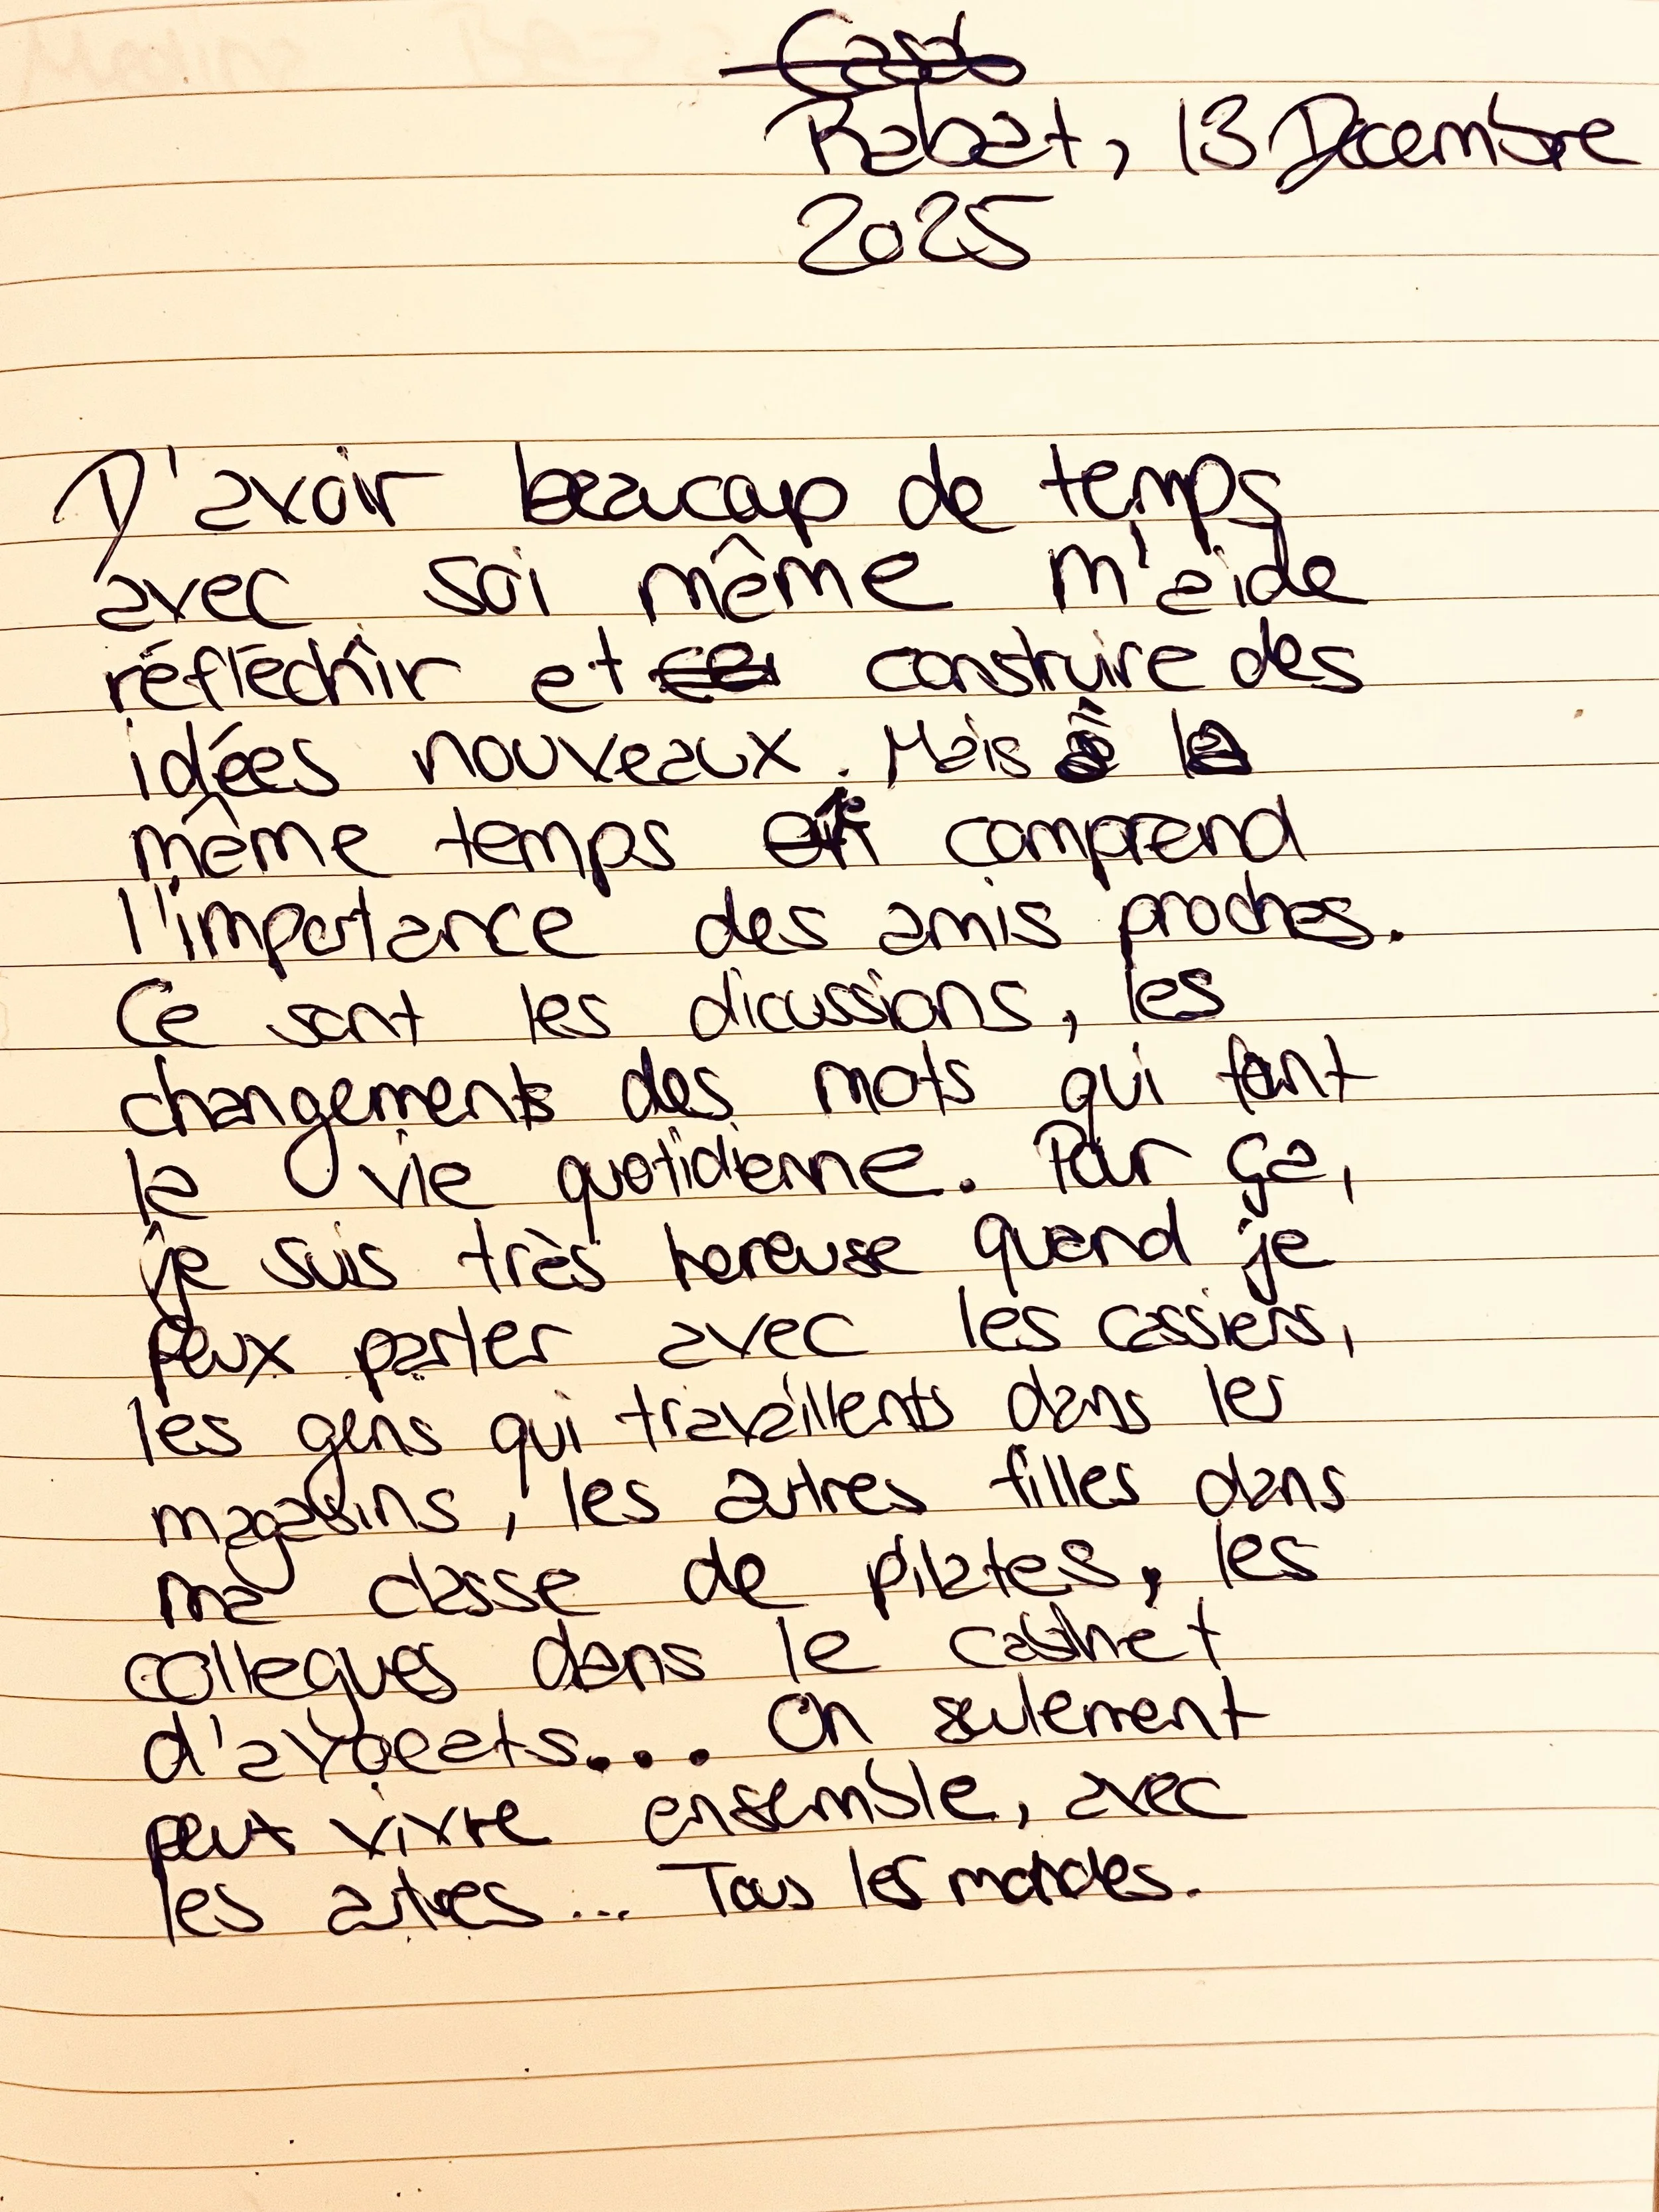 Rabat, 13 Decembre
2025
D'avoir beaucoup de temps
avec soi même m'aide
réfléchir et construire des
idées nouveaux. Mais à la
même temps on comprend
l'importance des amis proches.
Ce sont les dicussions, les
changements des mots qui font
la vie quotidienne. Pour ça,
je suis très hereuse quand je
peux parler avec les cassiers,
les gens qui travaillents dans les
magasins, les autres filles dans
ma classe de pilates, les
collegues dans le cabinet
d'avocats... On seulement
peut vivre ensemble, avec
les autres... Tous les mondes.